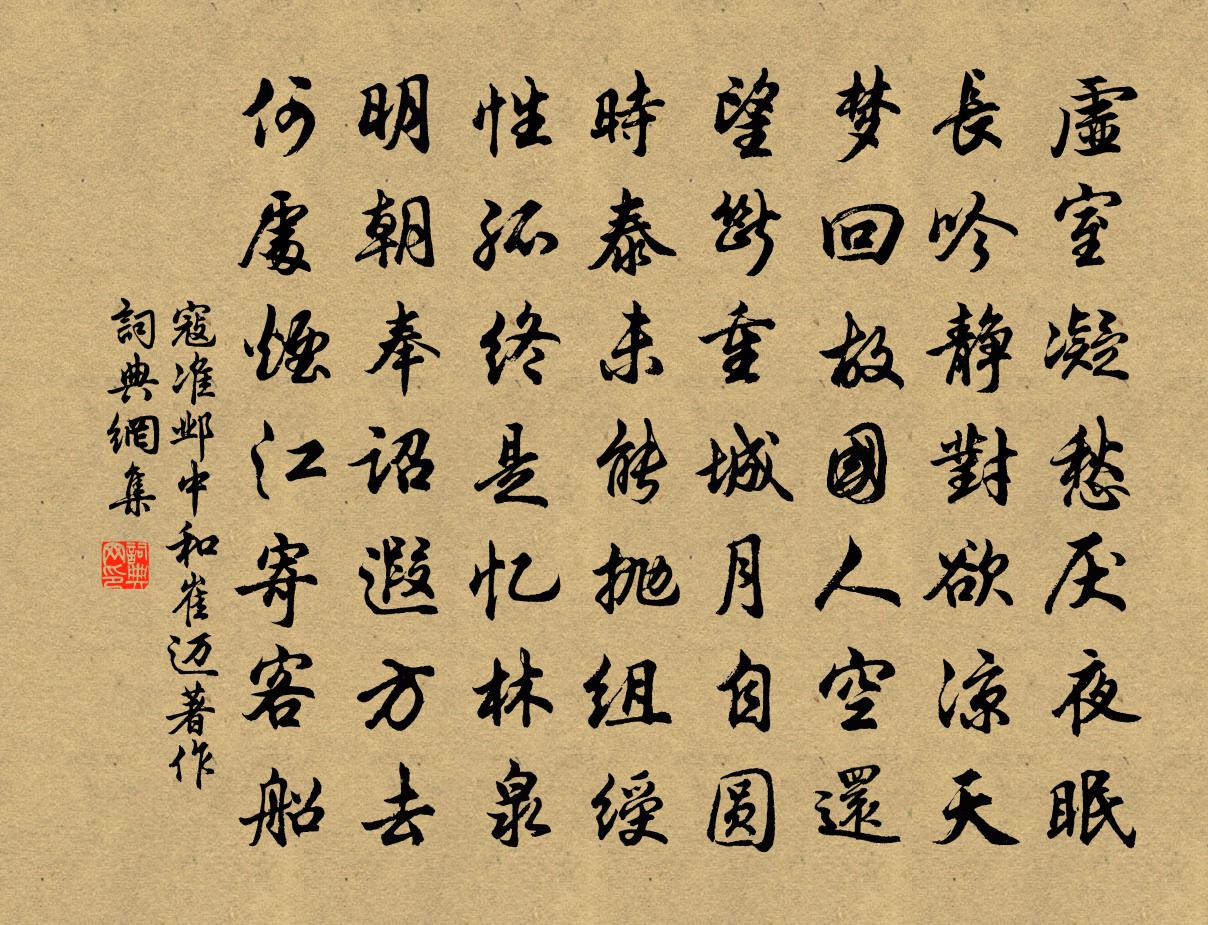 虛室凝愁厌夜眠
長吟静對欲凉天
梦回故國人空還
望斷重城月自圆
時泰未能抛組綬
性孤終是忆林泉
明朝奉詔遐方去
何處煙江寄客船
寇准邺中和崔迈著作
詞典網集
詞典
网印